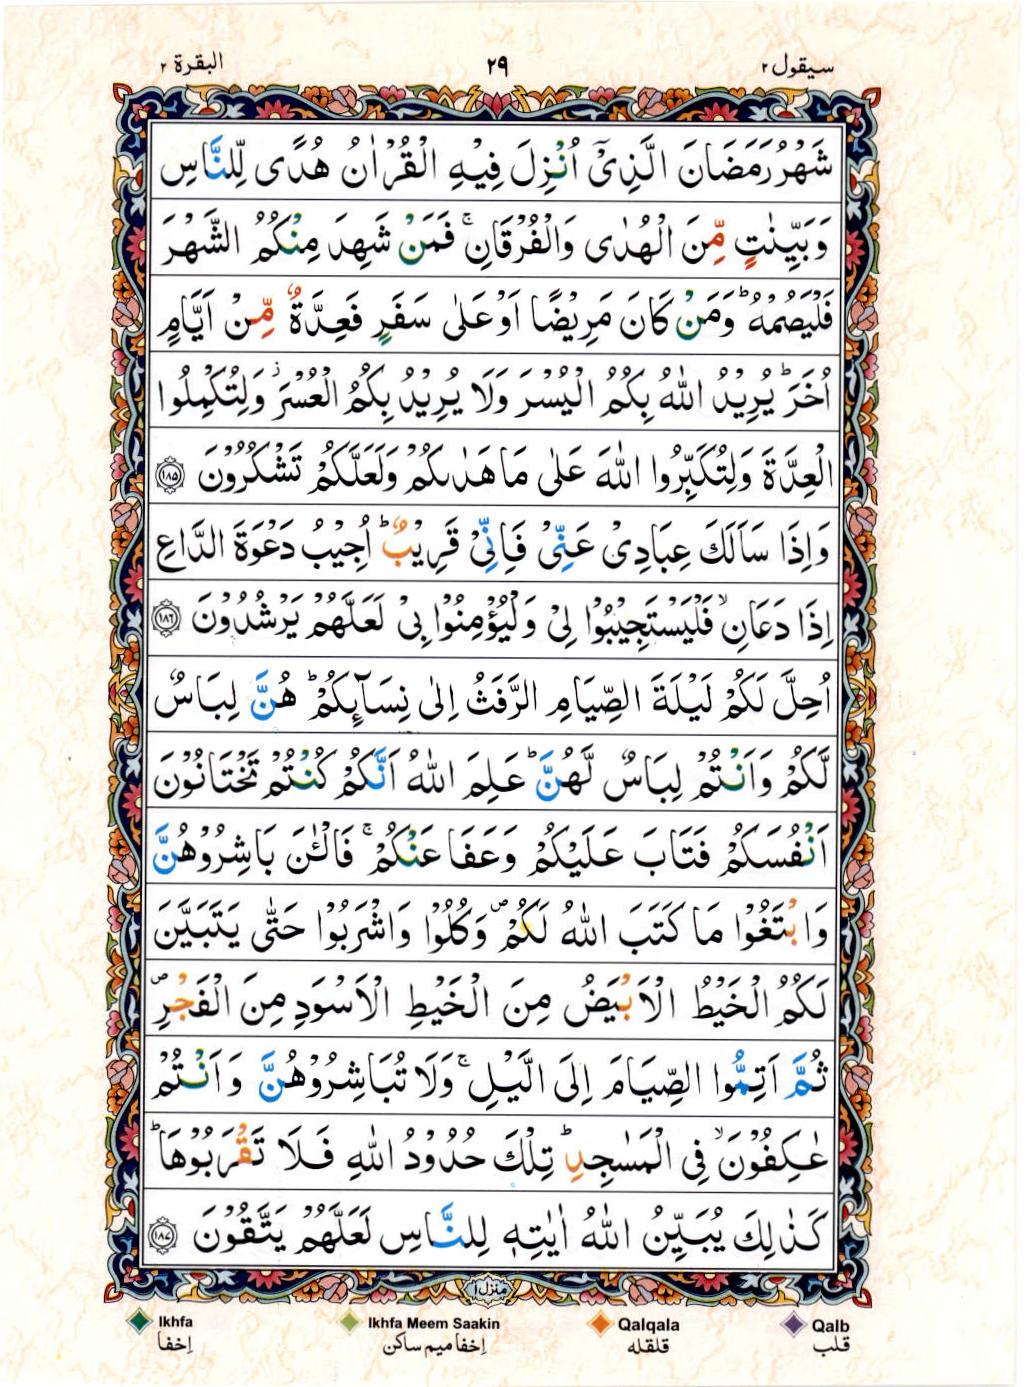 سيقول ٢
٢٩
البقرة ٢
شَهْرُ رَمَضَانَ الَّذِیْۤ اُنْزِلَ فِیْهِ الْقُرْاٰنُ هُدًی لِّلنَّاسِ
وَبَیِّنٰتٍ مِّنَ الْهُدٰی وَالْفُرْقَانِ ۚ فَمَنْ شَهِدَ مِنْكُمُ الشَّهْرَ
فَلْیَصُمْهُ ؕ وَمَنْ كَانَ مَرِیْضًا اَوْ عَلٰی سَفَرٍ فَعِدَّةٌ مِّنْ اَیَّامٍ
اُخَرَ ؕ یُرِیْدُ اللّٰهُ بِكُمُ الْیُسْرَ وَلَا یُرِیْدُ بِكُمُ الْعُسْرَ ۫ وَلِتُكْمِلُوا
الْعِدَّةَ وَلِتُكَبِّرُوا اللّٰهَ عَلٰی مَا هَدٰىكُمْ وَلَعَلَّكُمْ تَشْكُرُوْنَ ۝١٨٥
وَاِذَا سَاَلَكَ عِبَادِیْ عَنِّیْ فَاِنِّیْ قَرِیْبٌ ؕ اُجِیْبُ دَعْوَةَ الدَّاعِ
اِذَا دَعَانِ ۙ فَلْیَسْتَجِیْبُوْا لِیْ وَلْیُؤْمِنُوْا بِیْ لَعَلَّهُمْ یَرْشُدُوْنَ ۝١٨٦
اُحِلَّ لَكُمْ لَیْلَةَ الصِّیَامِ الرَّفَثُ اِلٰی نِسَآئِكُمْ ؕ هُنَّ لِبَاسٌ
لَّكُمْ وَاَنْتُمْ لِبَاسٌ لَّهُنَّ ؕ عَلِمَ اللّٰهُ اَنَّكُمْ كُنْتُمْ تَخْتَانُوْنَ
اَنْفُسَكُمْ فَتَابَ عَلَیْكُمْ وَعَفَا عَنْكُمْ ۚ فَالْـٰٔنَ بَاشِرُوْهُنَّ
وَابْتَغُوْا مَا كَتَبَ اللّٰهُ لَكُمْ ۪ وَكُلُوْا وَاشْرَبُوْا حَتّٰی یَتَبَیَّنَ
لَكُمُ الْخَیْطُ الْاَبْیَضُ مِنَ الْخَیْطِ الْاَسْوَدِ مِنَ الْفَجْرِ ۪
ثُمَّ اَتِمُّوا الصِّیَامَ اِلَی الَّیْلِ ۚ وَلَا تُبَاشِرُوْهُنَّ وَاَنْتُمْ
عٰكِفُوْنَ ۙ فِی الْمَسٰجِدِ ؕ تِلْكَ حُدُوْدُ اللّٰهِ فَلَا تَقْرَبُوْهَا ؕ
كَذٰلِكَ یُبَیِّنُ اللّٰهُ اٰیٰتِهٖ لِلنَّاسِ لَعَلَّهُمْ یَتَّقُوْنَ ۝١٨٧
منزل ١
Ikhfa
Ikhfa Meem Saakin
Qalqala
Qalb
إخفا
إخفا ميم ساكن
قلقله
قلب